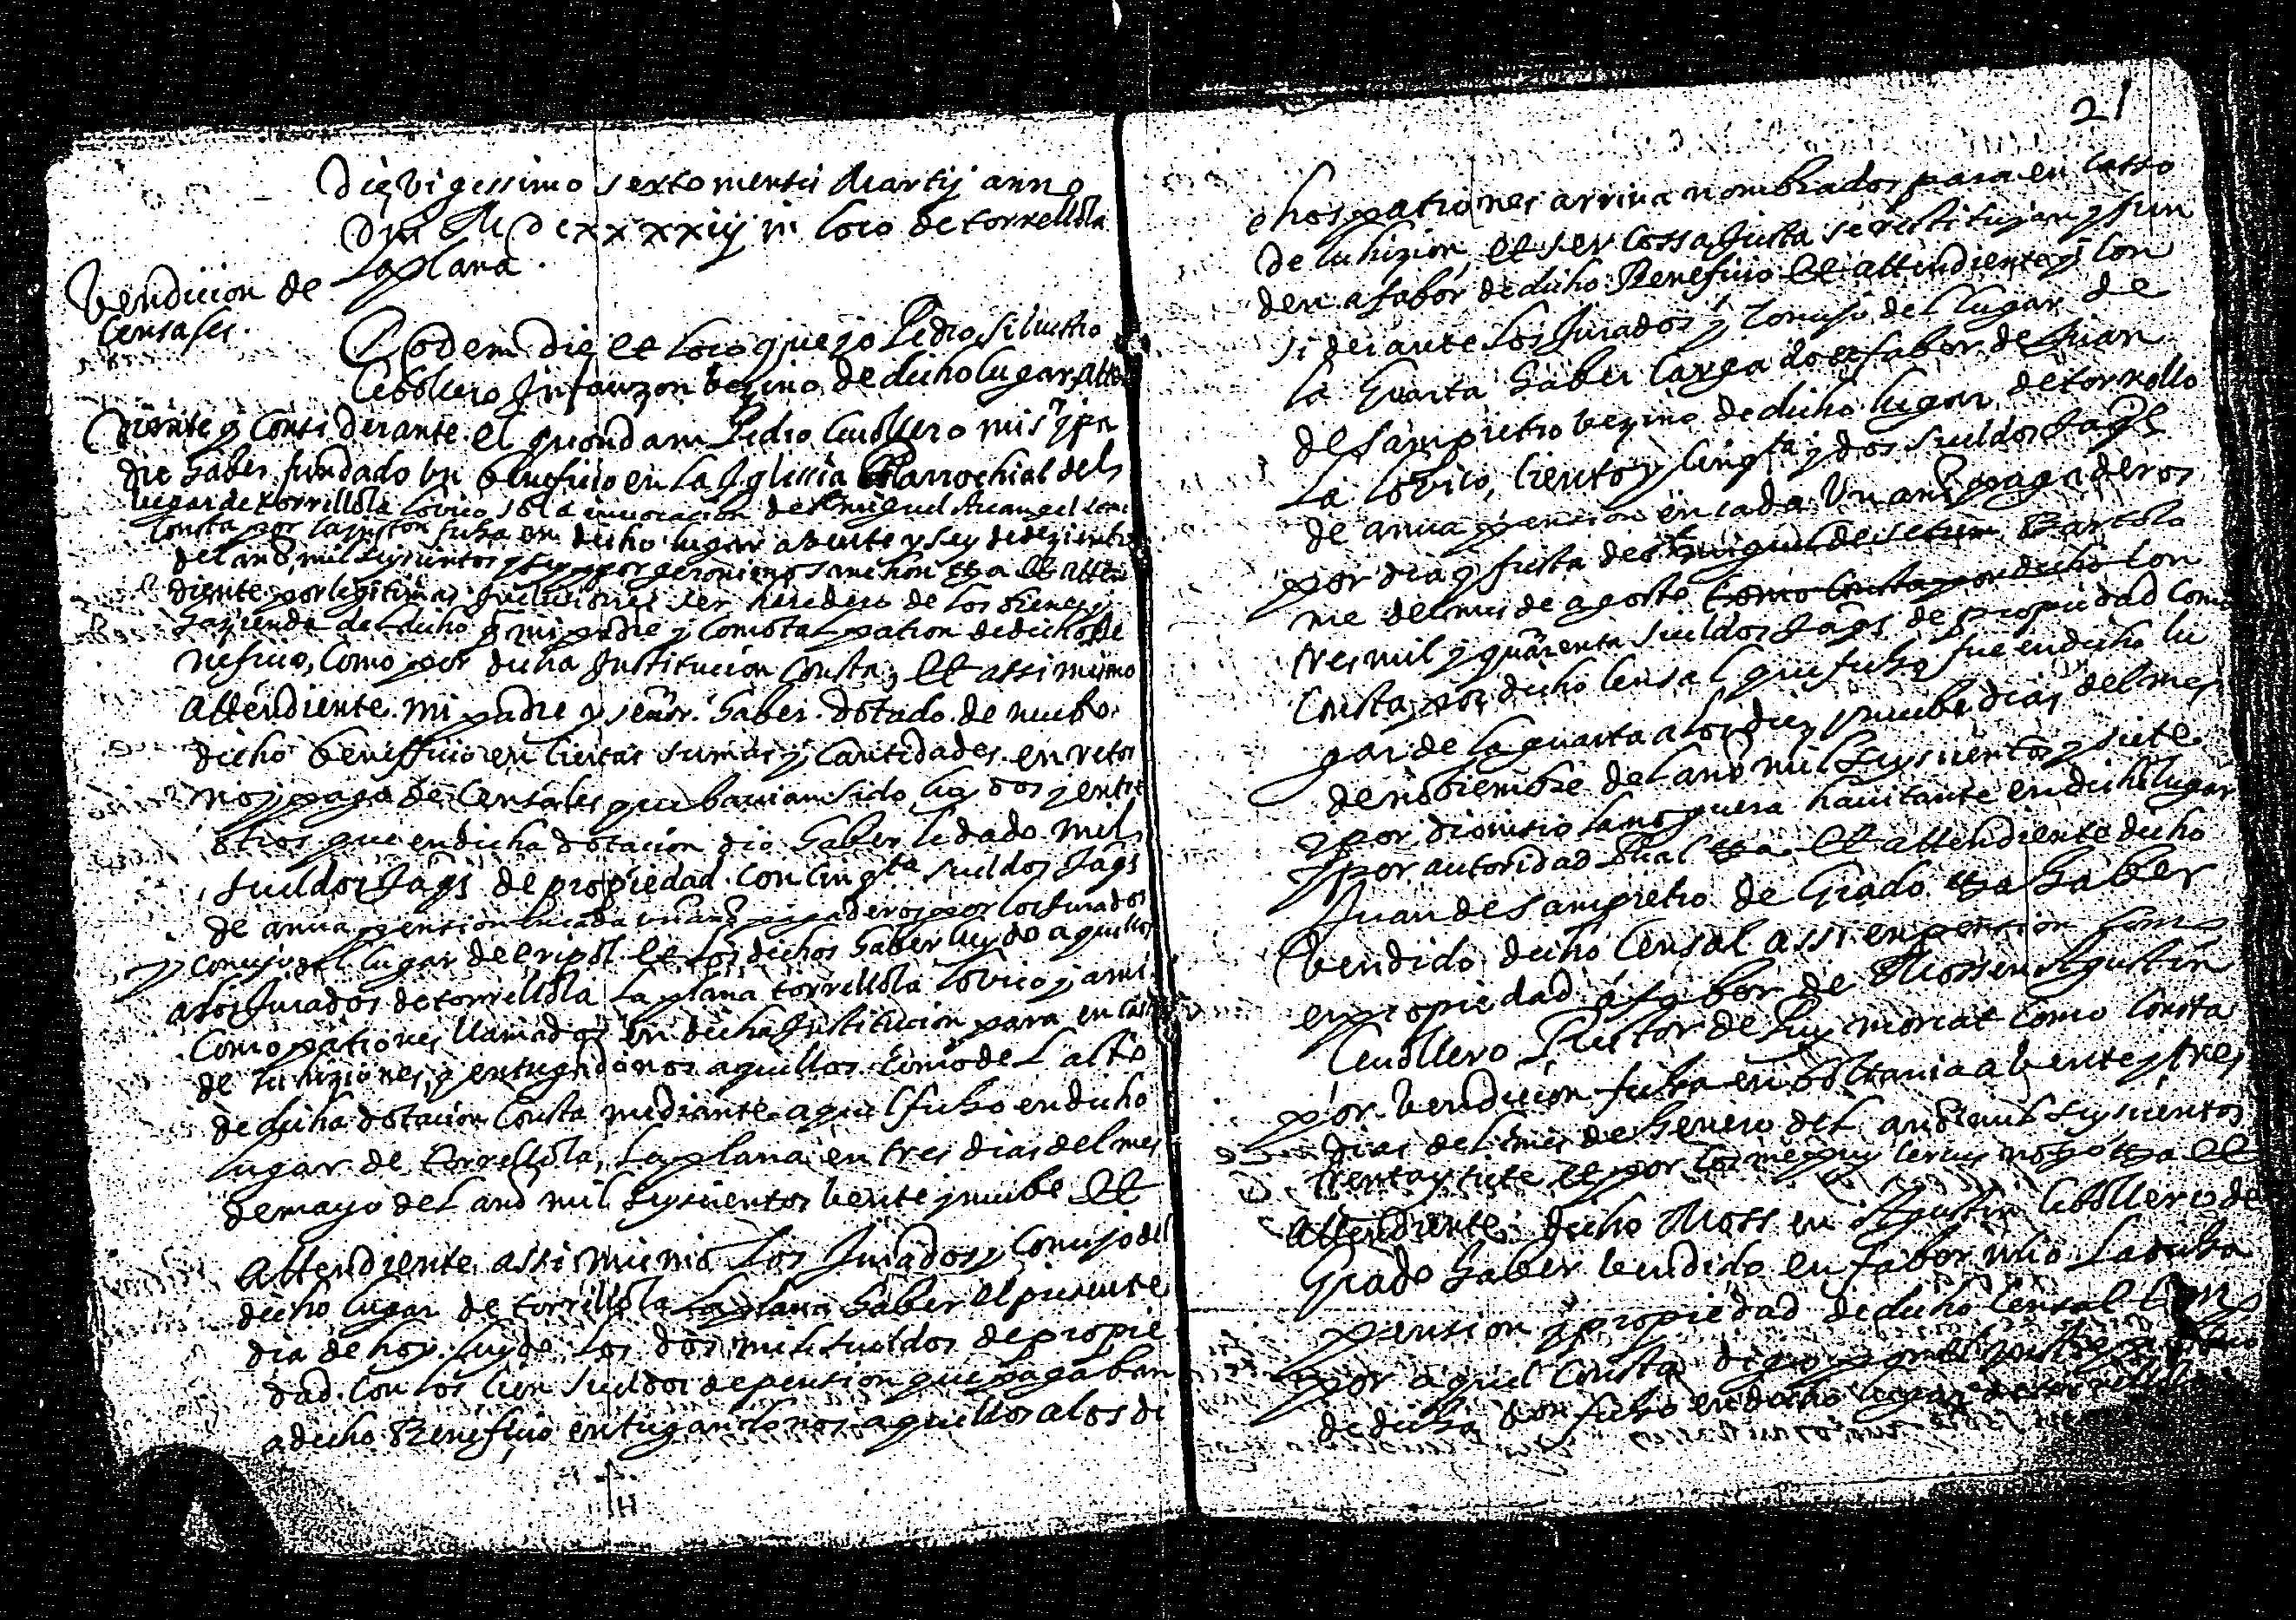 Die vigessimo sexto mensis Martij anno
Dni M Dcxxxxiij in loco de torrellola
la plana.
Vendicion de
Censales.
Eodem die et loco que yo Pedro Siluestro
Cebollero Infanzon vezino de dicho lugar Atten
diente y Considerante el quondam Pedro Cebollero mi Sr y pa
dre haber fundado un Beneficio en la Iglesia Parrochial del
lugar de torrellola lovico so la inuocacion de St miguel Arcangel como
consta por la fecha en dicho lugar a veinte y seys de dezienbre
del año mil seyscientos y por geronimo not &a et atten
diente por legitimas ser heredero de los bienes y
hazienda del dicho q mi padre y como tal patron de dicho Be
neficio, como por dicha Institucion consta, et assi mismo
Attendiente mi padre y señor haber dotado de nuebo
dicho beneficio en ciertas sumas y cantidades en retor
no y pago de Censales que hauian sido luydos y entre
otros que en dicha dotacion dio haber le dado mil
sueldos Jaqs de propiedad con cinqta sueldos Jaqs
de annua pension en cada un año pagaderos por los Jurados
y concejo del lugar de eripol et los dichos haber luydo aquellos
a los Jurados de torrellola la plana torrellola lovico y a mi
como patrones llamados en dicha Institucion para en casso
de luhiziones, y entregadonos aquellos como del acto
de dicha dotacion consta mediante aquel fecho en dicho
lugar de torrellola, la plana en tres dias del mes
de mayo del año mil seyscientos veinte y nuebe Et
Attendiente assi mismo los Jurados y Concejo del
dicho lugar de torrellola la plana haber el presente
dia de hoy luydo los dos mil sueldos de propie
dad con los cien sueldos de pension que pagaban
a dicho Beneficio entregandonos aquellos a los di
21
chos patrones arriua nombrados para en casso
de luhizion, et ser cossa Justa se restituyan y fun
den a fabor de dicho Beneficio Et attendiente y con
siderante los Jurados y Concejo del lugar de
la Guarta haber cargado a fabor de Juan
de Sampietro vezino de dicho lugar de torrollo
la lobico, ciento y cinqta y dos sueldos Jaqs
de annua pension en cada un año pagaderos
por dia y fiesta de St miguel de setiem Bartolo
me del mes de agosto como consta por dicho con
tres mil y quarenta sueldos Jaqs de propiedad como
consta por dicho censal que fecho fue en dicho lu
gar de la guarta a los diez y nuebe dias del mes
de nobiembre del año mil seyscientos y siete
y por dionisio lanoguera hauitante en dicho lugar
y por autoridad Real &a Et attendiente dicho
Juan de Sampietro de Grado &a haber
vendido dicho Censal assi en pension como
en propiedad a fabor de Mossen Agustin
Cebollero Rector de Puymorcat como consta
por vendicion fecha en boltania a veinte y tres
dias del mes de henero del año mil seyscientos
trenta y siete et por not &a Et
Attendiente dicho Mossen Agustin Cebollero de
Grado haber vendido en fabor mio la dicha
pension y propiedad de dicho censal como
por aquel consta digo por
de dicha fecho en dicho lugar de torrellola